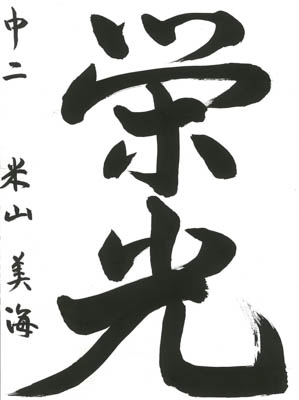 栄光
中二 米山美海